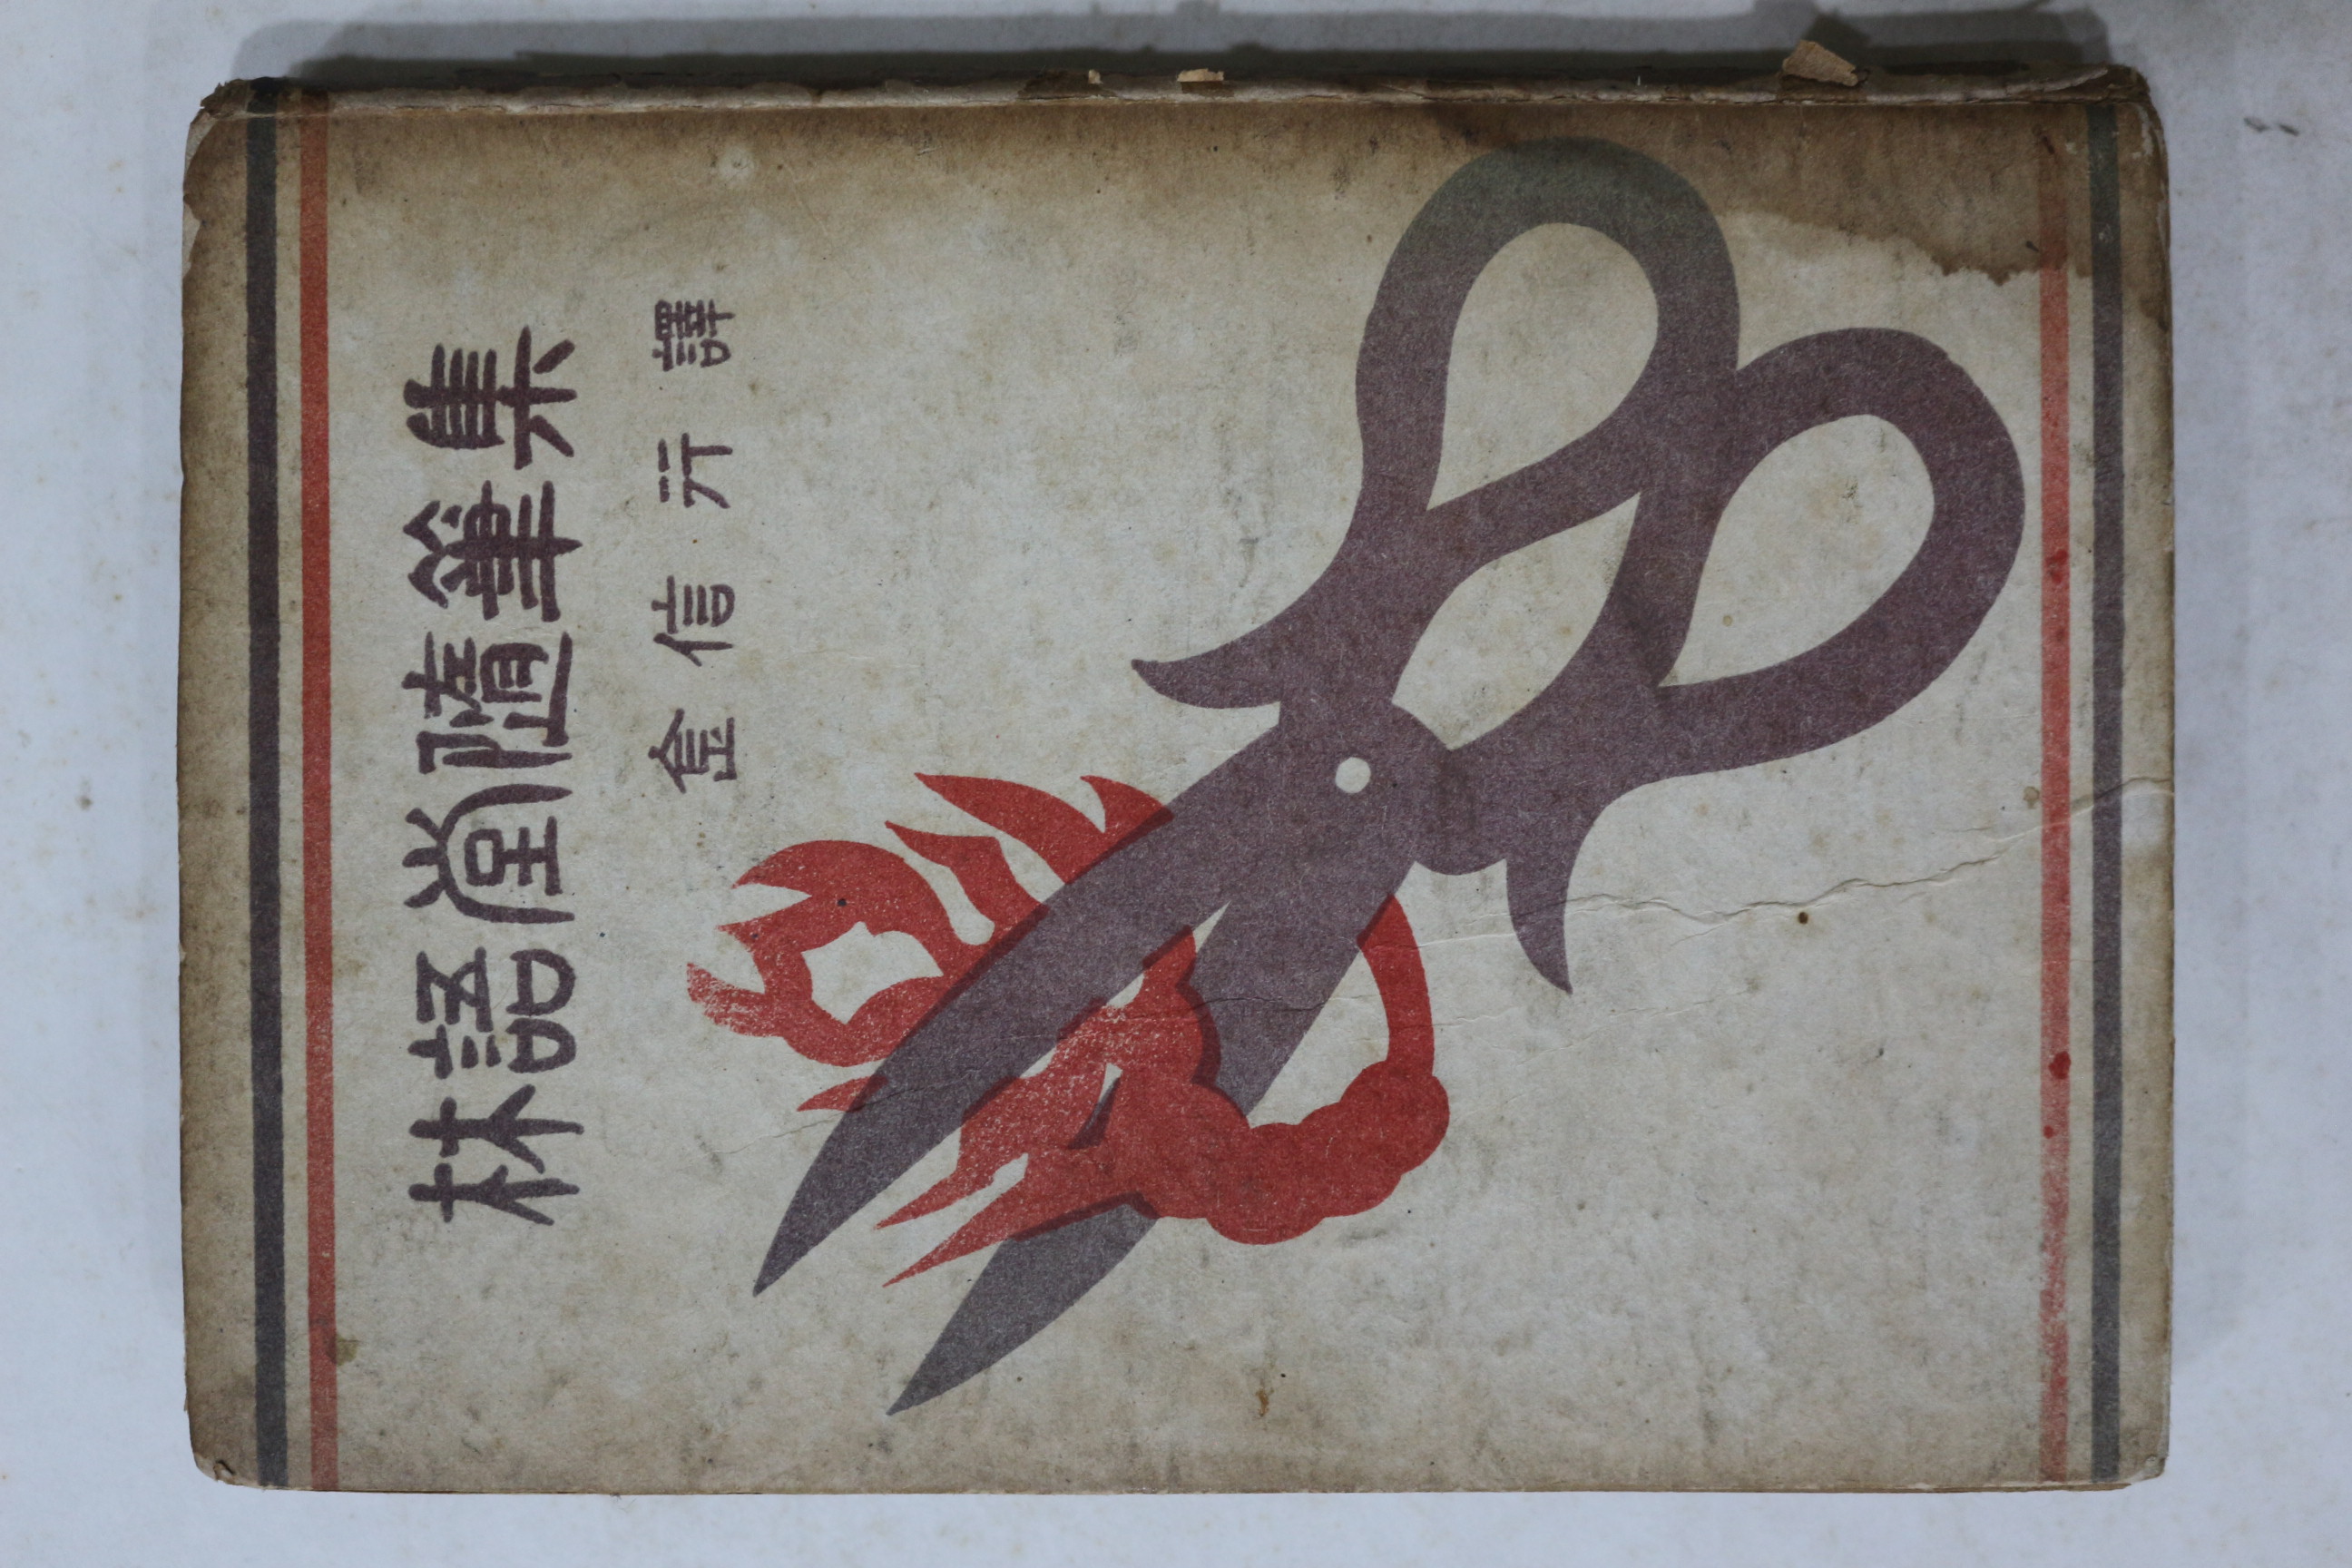 林語堂隨筆集
金信行譯